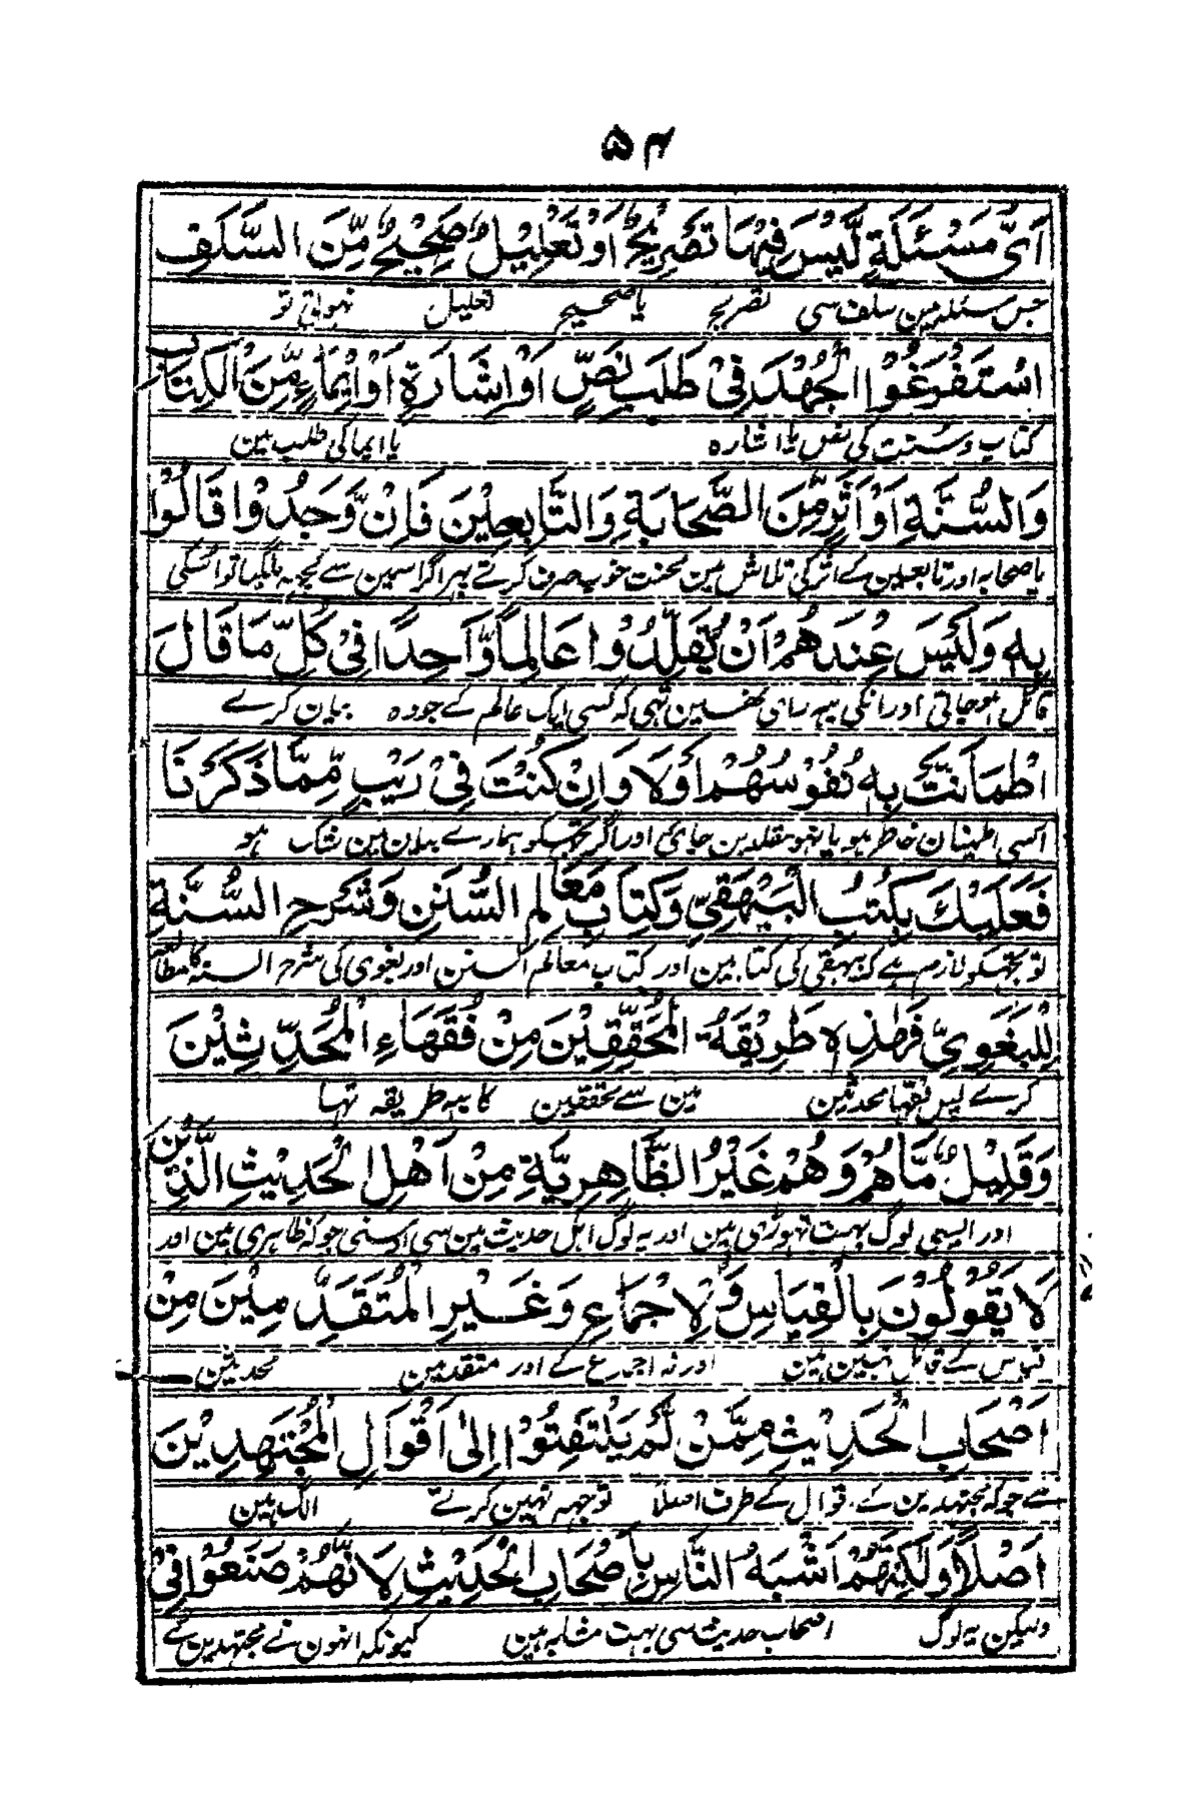 ۵۴
اَیُّ مَسْئَلَةٍ لَّیْسَ فِیْهَا تَصْرِیْحٌ اَوْ تَعْلِیْلٌ صَحِیْحٌ مِّنَ السَّلَفِ
جس مسئله مین سلف سی تصریح یا صحیح تعلیل نہوتی تو
اسْتَفْرَغُوا الْجُهْدَ فِیْ طَلَبِ نَصٍّ اَوْ اِشَارَةٍ اَوْ اِیْمَاءٍ مِّنَ الْکِتَابِ
کتاب و سنت کی نص یا اشاره یا ایما کی طلب مین
وَالسُّنَّةِ اَوْ اَثَرٍ مِّنَ الصَّحَابَةِ وَالتَّابِعِیْنَ فَاِنْ وَّجَدُوْا قَالُوْا
یا صحابه اور تابعین کے اثر کی تلاش مین محنت خوب صرف کرتے پہر اگر اسمین سے کچهه پا لیا تو اسکی
بِهٖ وَلَیْسَ عِنْدَهُمْ اَنْ یُّقَلِّدُوْا عَالِمًا وَّاحِدًا فِیْ کُلِّ مَا قَالَ
قائل ہو جاتی اور انکی یہه رای نہین تہی که کسی ایک عالم کے جو وه بیان کرے
اطْمَاَنَّتْ بِهٖ نُفُوْسُهُمْ اَوْ لَا وَاِنْ کُنْتَ فِیْ رَیْبٍ مِّمَّا ذَکَرْنَا
اسی اطمینان خاطر ہو یا نہو مقلد بن جائی اور اگر تجهکو ہمارے بیان مین شک ہو
فَعَلَیْكَ بِکُتُبِ الْبَیْهَقِیِّ وَکِتَابِ مَعَالِمِ السُّنَنِ وَشَرْحِ السُّنَّةِ
تو تجهکو لازم ہے که بیہقی کی کتابین اور کتاب معالم السنن اور بغوی کی شرح السنه کا مطالعه
لِلْبَغَوِیِّ فَهٰذِهٖ طَرِیْقَةُ الْمُحَقِّقِیْنَ مِنْ فُقَهَاءِ الْمُحَدِّثِیْنَ
کرے پس فقہا محدثین مین سے محققین کا یہه طریقه تها
وَقَلِیْلٌ مَّا هُمْ وَهُمْ غَیْرُ الظَّاهِرِیَّةِ مِنْ اَهْلِ الْحَدِیْثِ الَّذِیْنَ
اور ایسی لوگ بہت تہوڑی ہین اور یه لوگ اہل حدیث مین سی جو که ظاہری ہین اور
لَا یَقُوْلُوْنَ بِالْقِیَاسِ وَلَا الْاِجْمَاعِ وَغَیْرِ الْمُتَقَدِّمِیْنَ مِنْ
قیاس کے قائل نہین ہین اور نه اجماع کے اور متقدمین محدثین
اَصْحَابِ الْحَدِیْثِ مِمَّنْ لَّمْ یَلْتَفِتُوْا اِلٰی اَقْوَالِ الْمُجْتَهِدِیْنَ
سے جو که مجتهدین کے اقوال کے طرف اصلا توجهه نہین کرتے الگ ہین
اَصْلًا وَلٰکِنَّهُمْ اَشْبَهُ النَّاسِ بِاَصْحَابِ الْحَدِیْثِ لِاَنَّهُمْ صَنَعُوْا فِیْ
ولیکن یه لوگ اصحاب حدیث سی بہت مشابه ہین کیونکه انہون نے مجتهدین کے